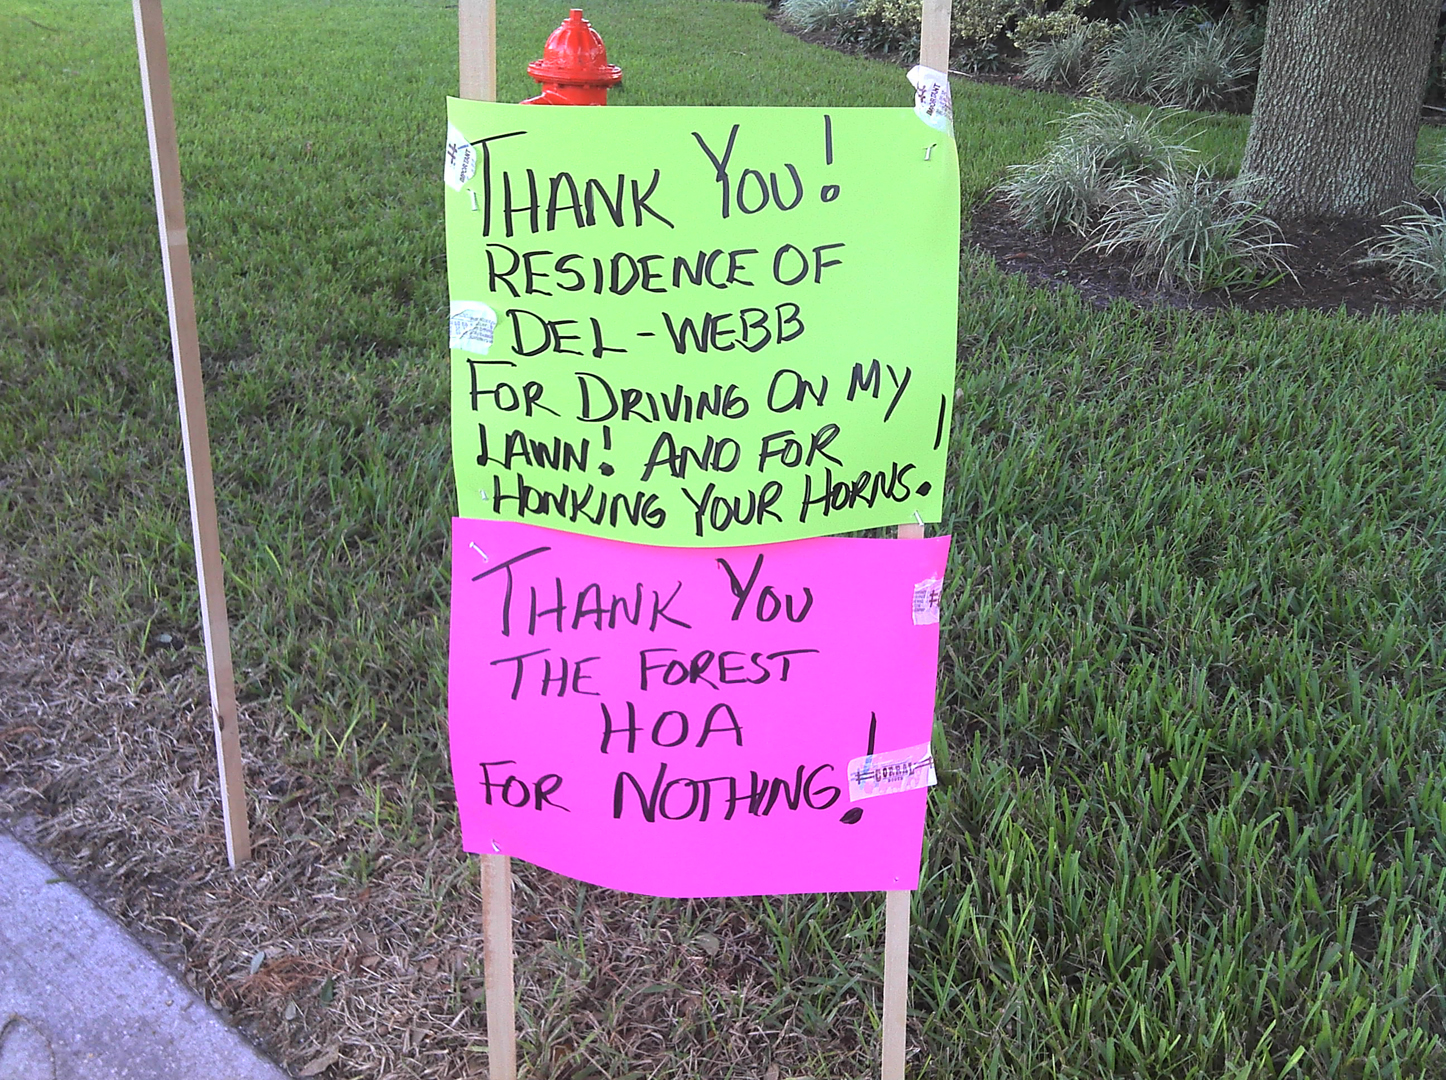 THANK YOU!
RESIDENCE OF
DEL-WEBB
FOR DRIVING ON MY
LAWN! AND FOR
HONKING YOUR HORNS.!
THANK YOU
THE FOREST
HOA
FOR NOTHING!
IMPORTANT
IMPORTANT
CORRAL